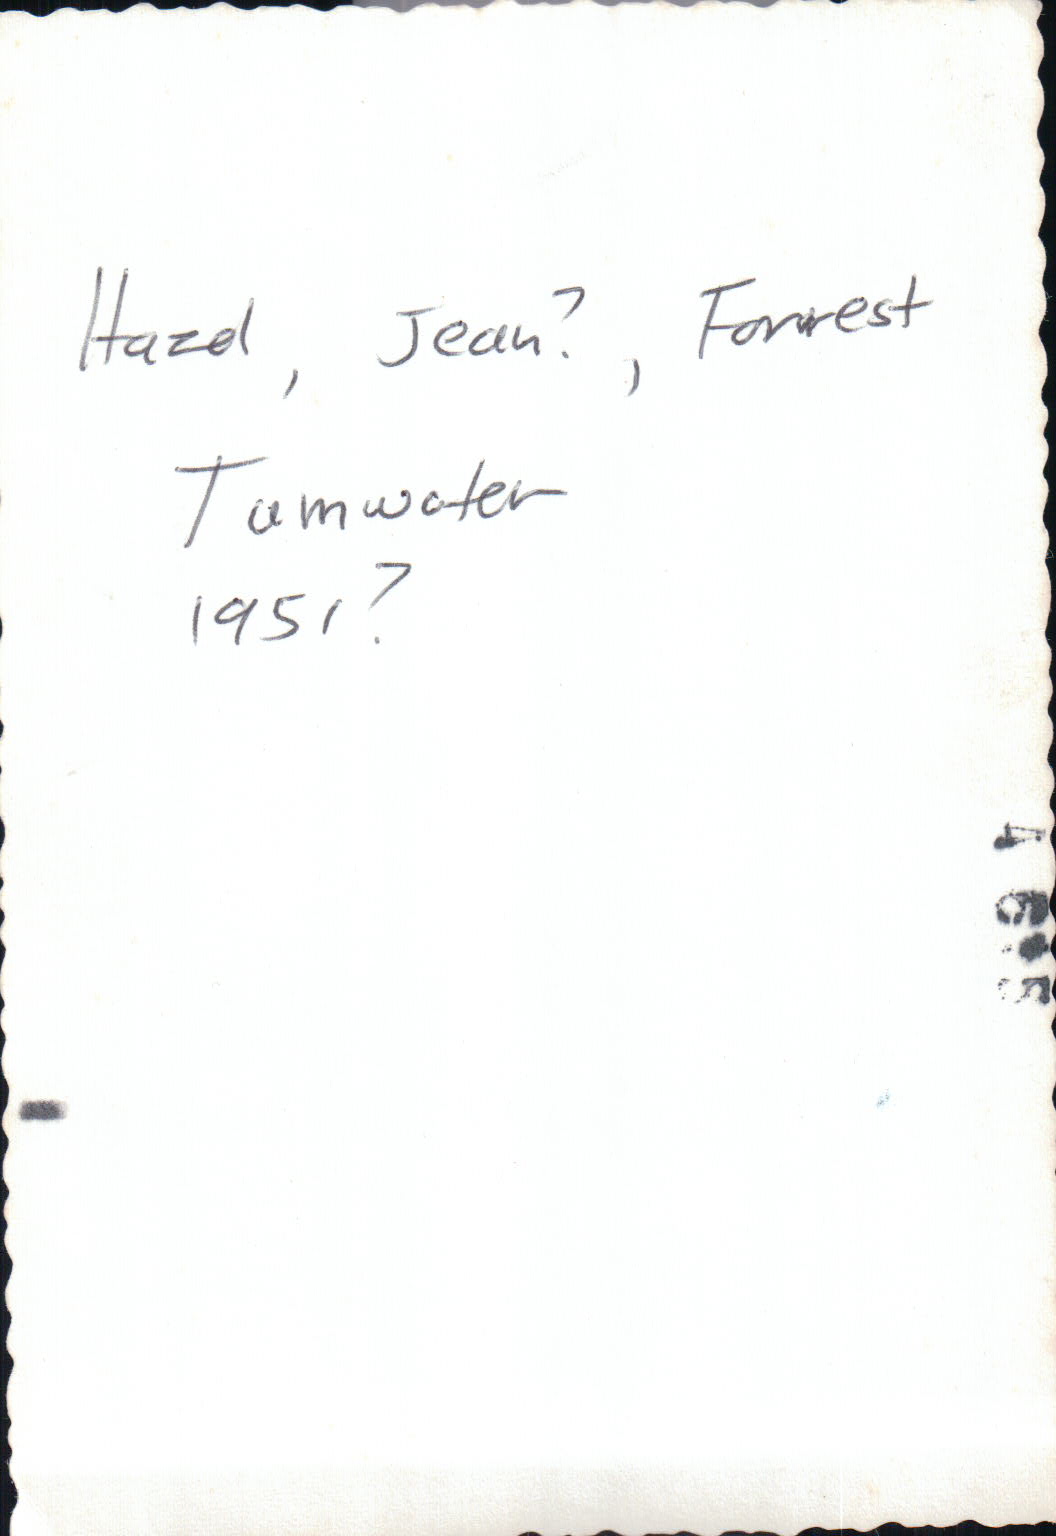 Hazel, Jean?, Forrest
Tumwater
1951?